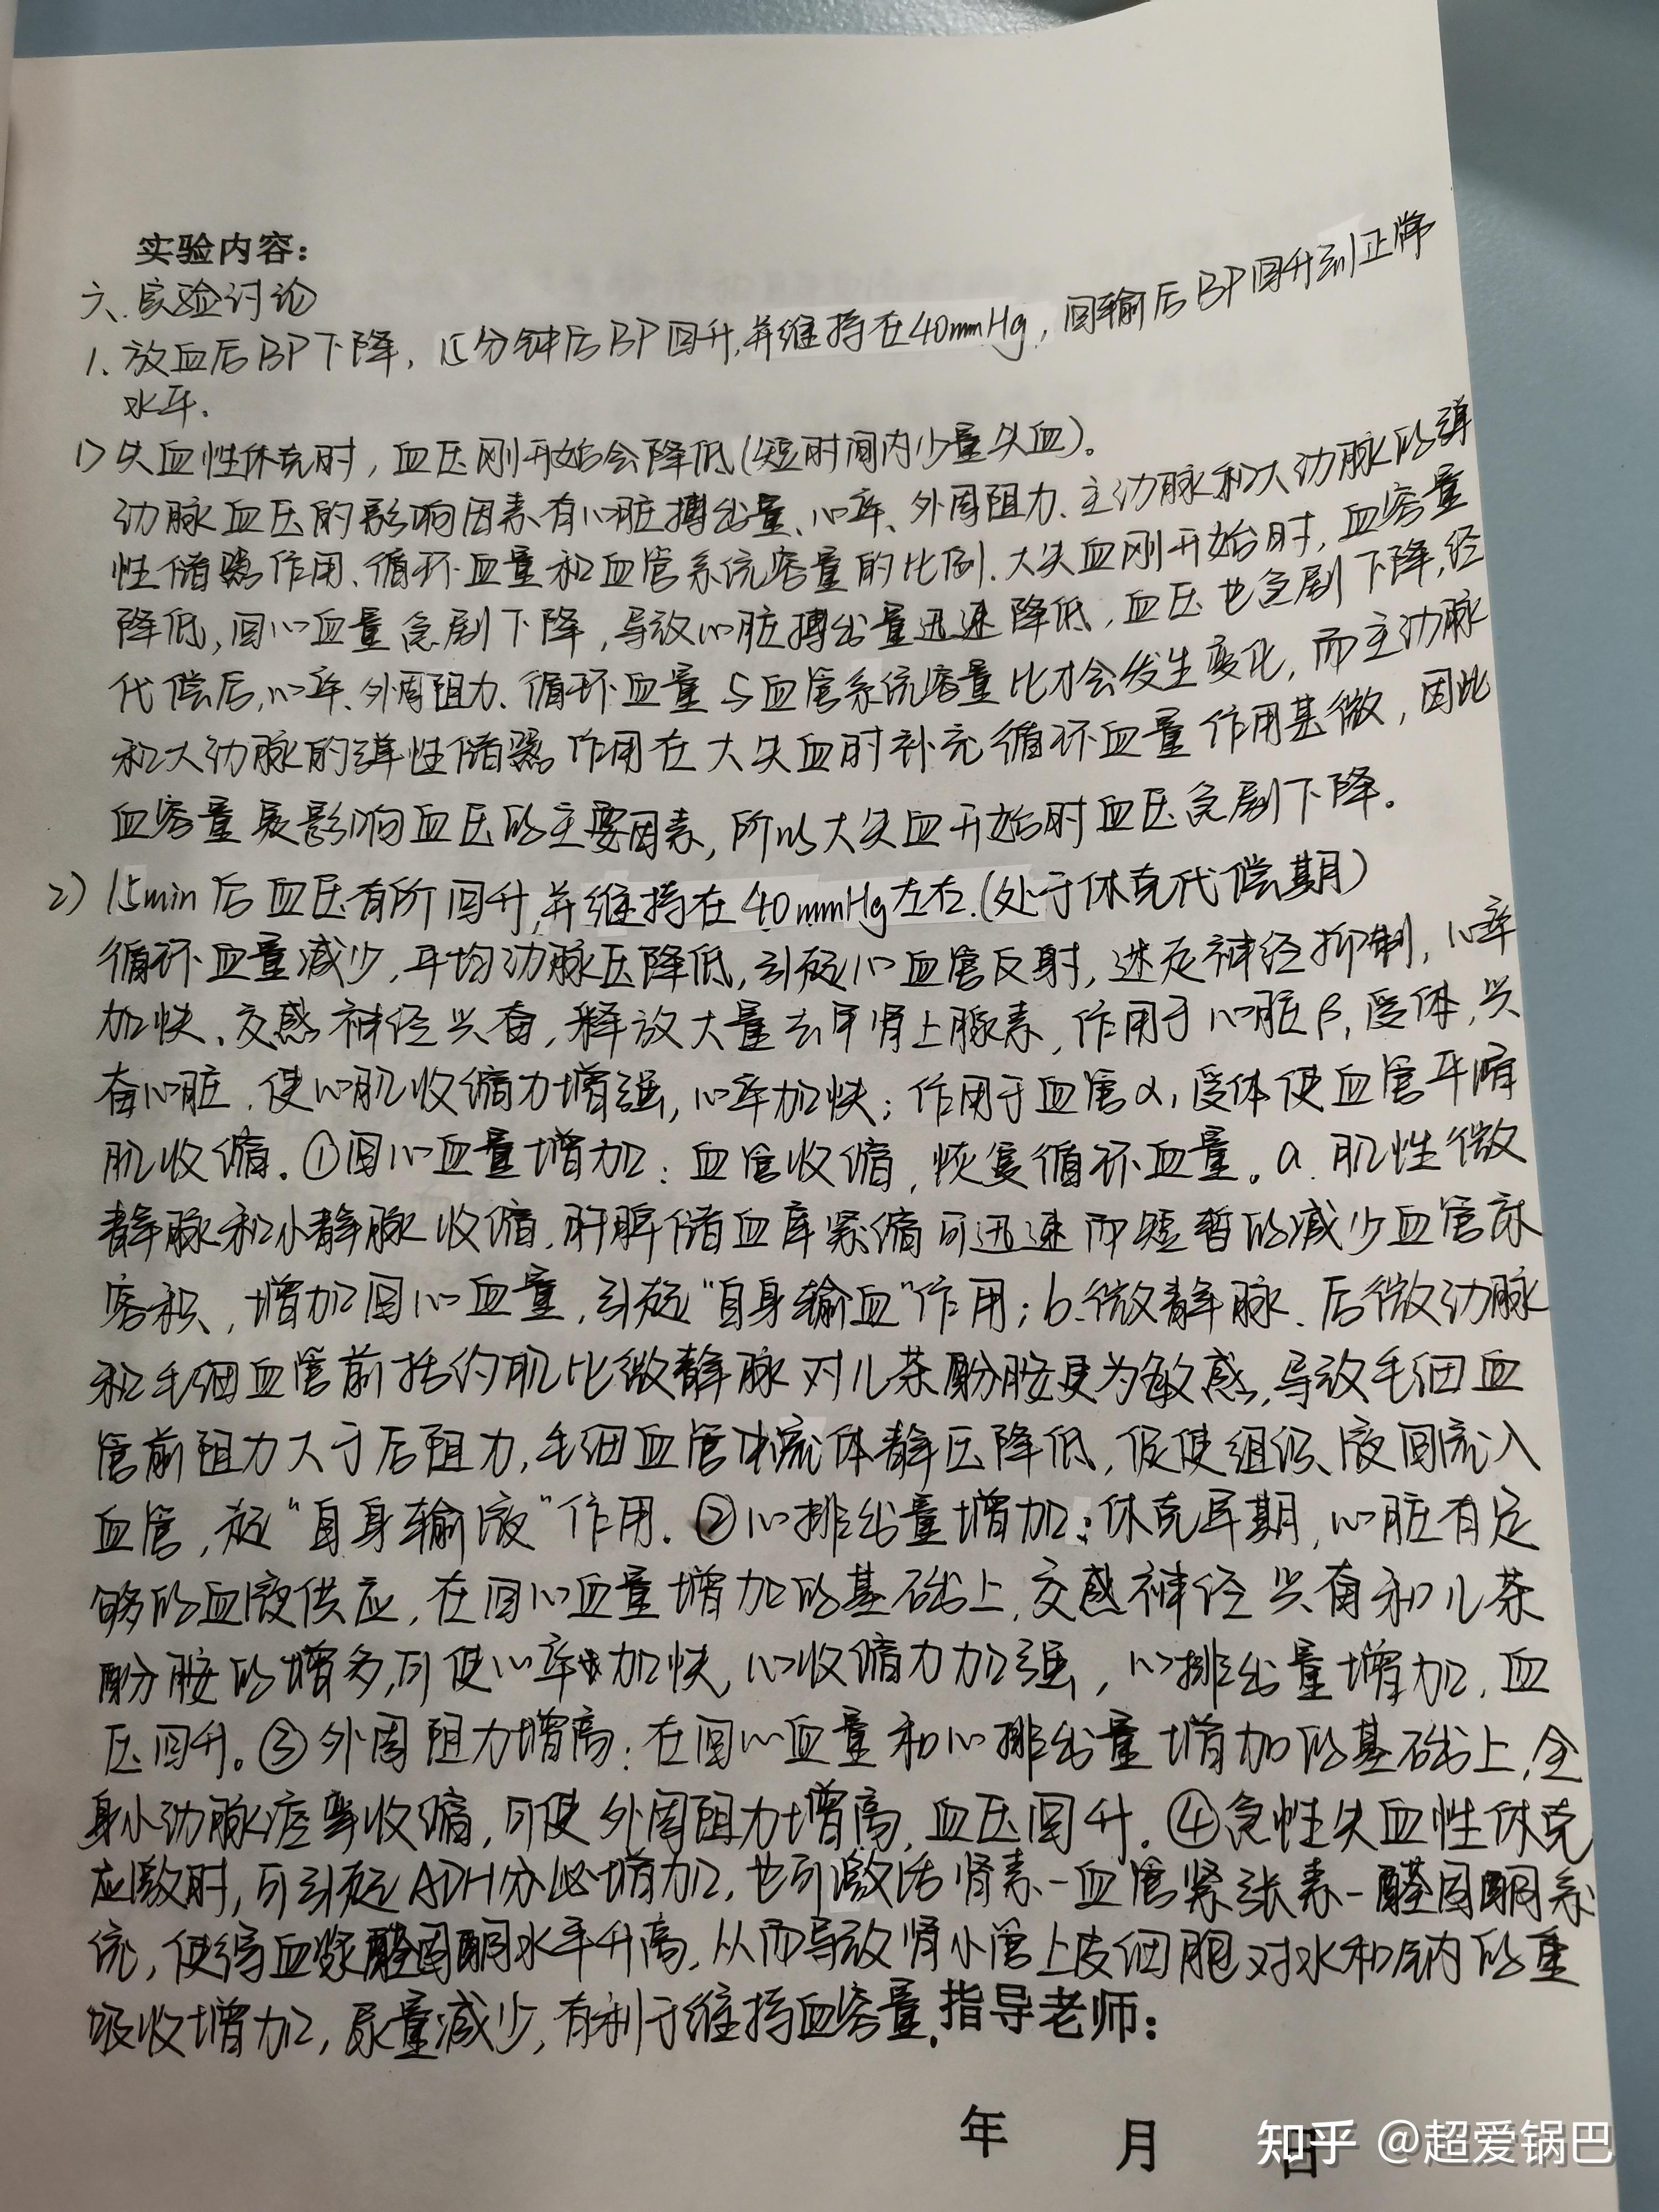 实验内容：
六、实验讨论
1、放血后BP下降，15分钟后BP回升，并维持在40mmHg，回输后BP回升到正常
水平。
1）失血性休克时，血压刚开始会降低（短时间内少量失血）。
动脉血压的影响因素有心脏搏出量、心率、外周阻力、主动脉和大动脉的弹
性储器作用、循环血量和血管系统容量的比例。大失血刚开始时，血容量
降低，回心血量急剧下降，导致心脏搏出量迅速降低，血压也急剧下降，经
代偿后，心率、外周阻力、循环血量与血管系统容量比才会发生变化，而主动脉
和大动脉的弹性储器作用在大失血时补充循环血量作用甚微，因此
血容量是影响血压的主要因素，所以大失血开始时血压急剧下降。
2）15min后血压有所回升，并维持在40mmHg左右。（处于休克代偿期）
循环血量减少，平均动脉压降低，引起心血管反射，迷走神经抑制，心率
加快、交感神经兴奋，释放大量去甲肾上腺素，作用于心脏β₁受体，兴
奋心脏，使心肌收缩力增强，心率加快；作用于血管α₁受体使血管平滑
肌收缩。①回心血量增加：血管收缩，恢复循环血量。a.肌性微
静脉和小静脉收缩，肝脾储血库紧缩可迅速而短暂的减少血管床
容积，增加回心血量，引起“自身输血”作用；b.微静脉、后微动脉
和毛细血管前括约肌比微静脉对儿茶酚胺更为敏感，导致毛细血
管前阻力大于后阻力，毛细血管床流体静压降低，促使组织液回流入
血管，起“自身输液”作用。②心排出量增加：休克早期，心脏有足
够的血液供应，在回心血量增加的基础上，交感神经兴奋和儿茶
酚胺的增多，可使心率加快，心收缩力加强，心排出量增加，血
压回升。③外周阻力增高：在回心血量和心排出量增加的基础上，全
身小动脉痉挛收缩，可使外周阻力增高，血压回升。④急性失血性休克
应激时，可引起ADH分泌增加，也可激活肾素-血管紧张素-醛固酮系
统，使得血浆醛固酮水平升高，从而导致肾小管上皮细胞对水和钠的重
吸收增加，尿量减少，有利于维持血容量。指导老师：
年 月 日
知乎 @超爱锅巴